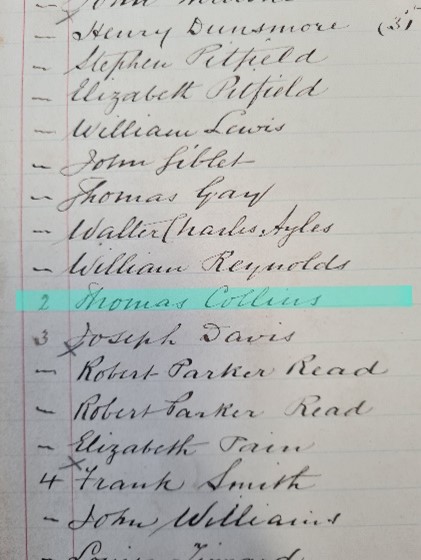 - John
- Henry Dunsmore (31
- Stephen Pitfield
- Elizabeth Pitfield
- William Lewis
- John Giblet
- Thomas Gay
- Walter Charles Ayles
- William Reynolds
2 Thomas Collins
3 Joseph Davis
- Robert Parker Read
- Robert Parker Read
- Elizabeth Pain
4 Frank Smith
- John Williams
- Louisa